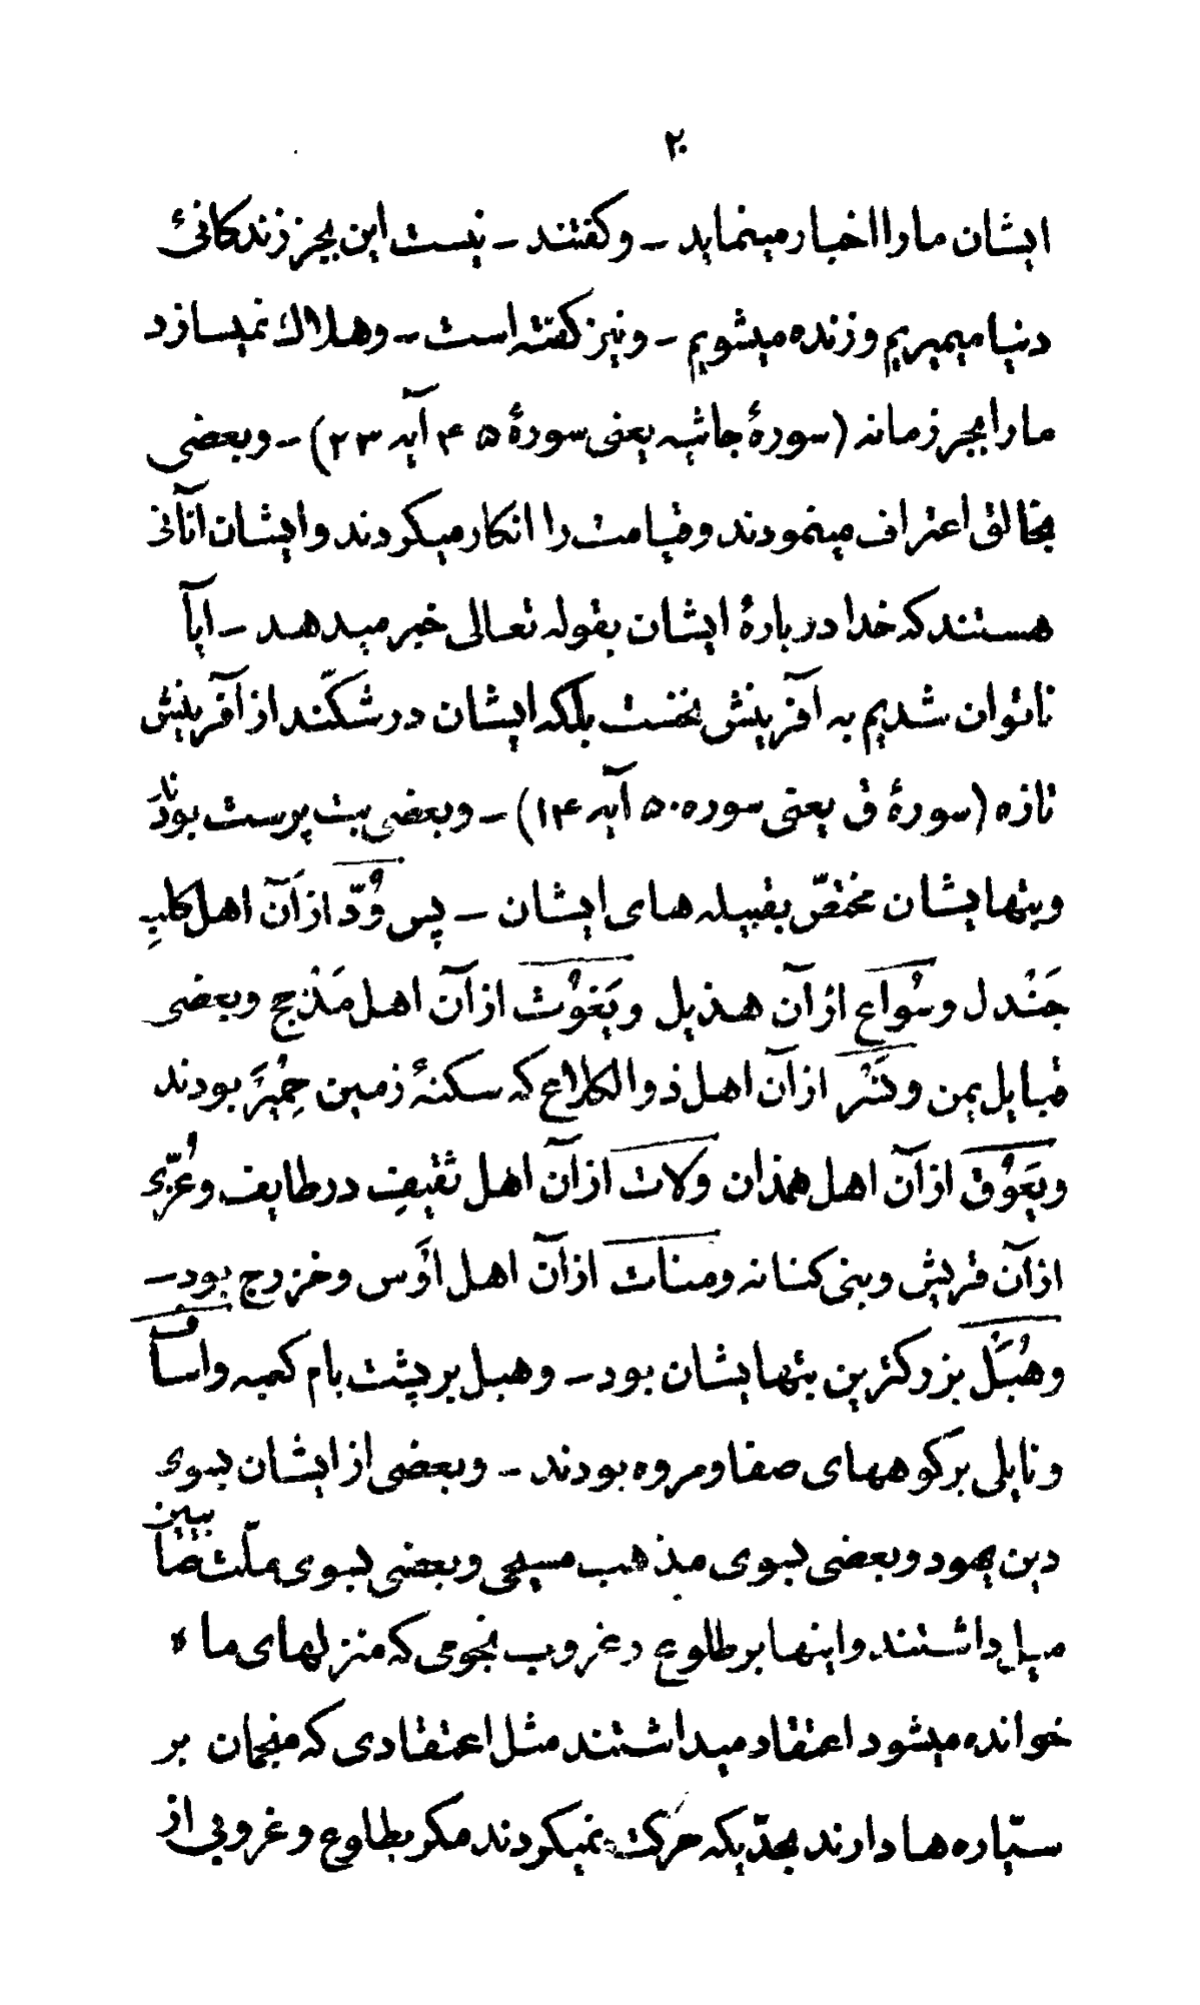 ۲۰
ایشان مارا اخبار مینماید - و کفتند - نیست این بجز زندکانیٔ
دنیا میمیریم و زنده میشویم - و نیز کفته است - و هلاك نمیسازد
مارا بجز زمانه (سورهٔ جاثیه یعنی سورهٔ ۴۵ آیه ۲۳) - و بعضی
بخالق اعتراف مینمودند و قیامت را انکار میکردند و ایشان آنانی
هستند که خدا دربارهٔ ایشان بقوله تعالی خبر میدهد - ایآ
ناتوان شدیم به آفرینش نخست بلکه ایشان در شکّند از آفرینش
تازه (سورهٔ ق یعنی سوره ۵۰ آیه ۱۴) - و بعضی بت پرست بودند
و بتهایشان مختصّ بقبیله های ایشان - پس وُدّ از آن اهل کلبِ
جَنْدل و سُواع از آن هذیل و یَغوُث از آن اهل مَذْحج و بعضی
قبایل یمن و نَسْر از آن اهل ذوالکلاع که سکنهٔ زمین حِمْیَر بودند
و یَعوُق از آن اهل همذان و لات از آن اهل ثقیف در طایف و عُزّی
از آن قریش و بنی کنانه و منات از آن اهل اَوْس و خزرج بود -
و هُبَل بزرکترین بتهایشان بود - و هبل بر پشت بام کعبه و اساف
و نایلی بر کوههای صفا و مروه بودند - و بعضی از ایشان بسوی
دین یهود و بعضی بسوی مذهب مسیحی و بعضی بسوی ملّت صابیین
میل داشتند و اینها بر طلوع و غروب نجومی که منزلهای ماه
خوانده میشود اعتقاد میداشتند مثل اعتقادی که منجمان بر
ستّاره ها دارند بحدّیکه حرکت نمیکردند مکر بطلوع و غروبی از